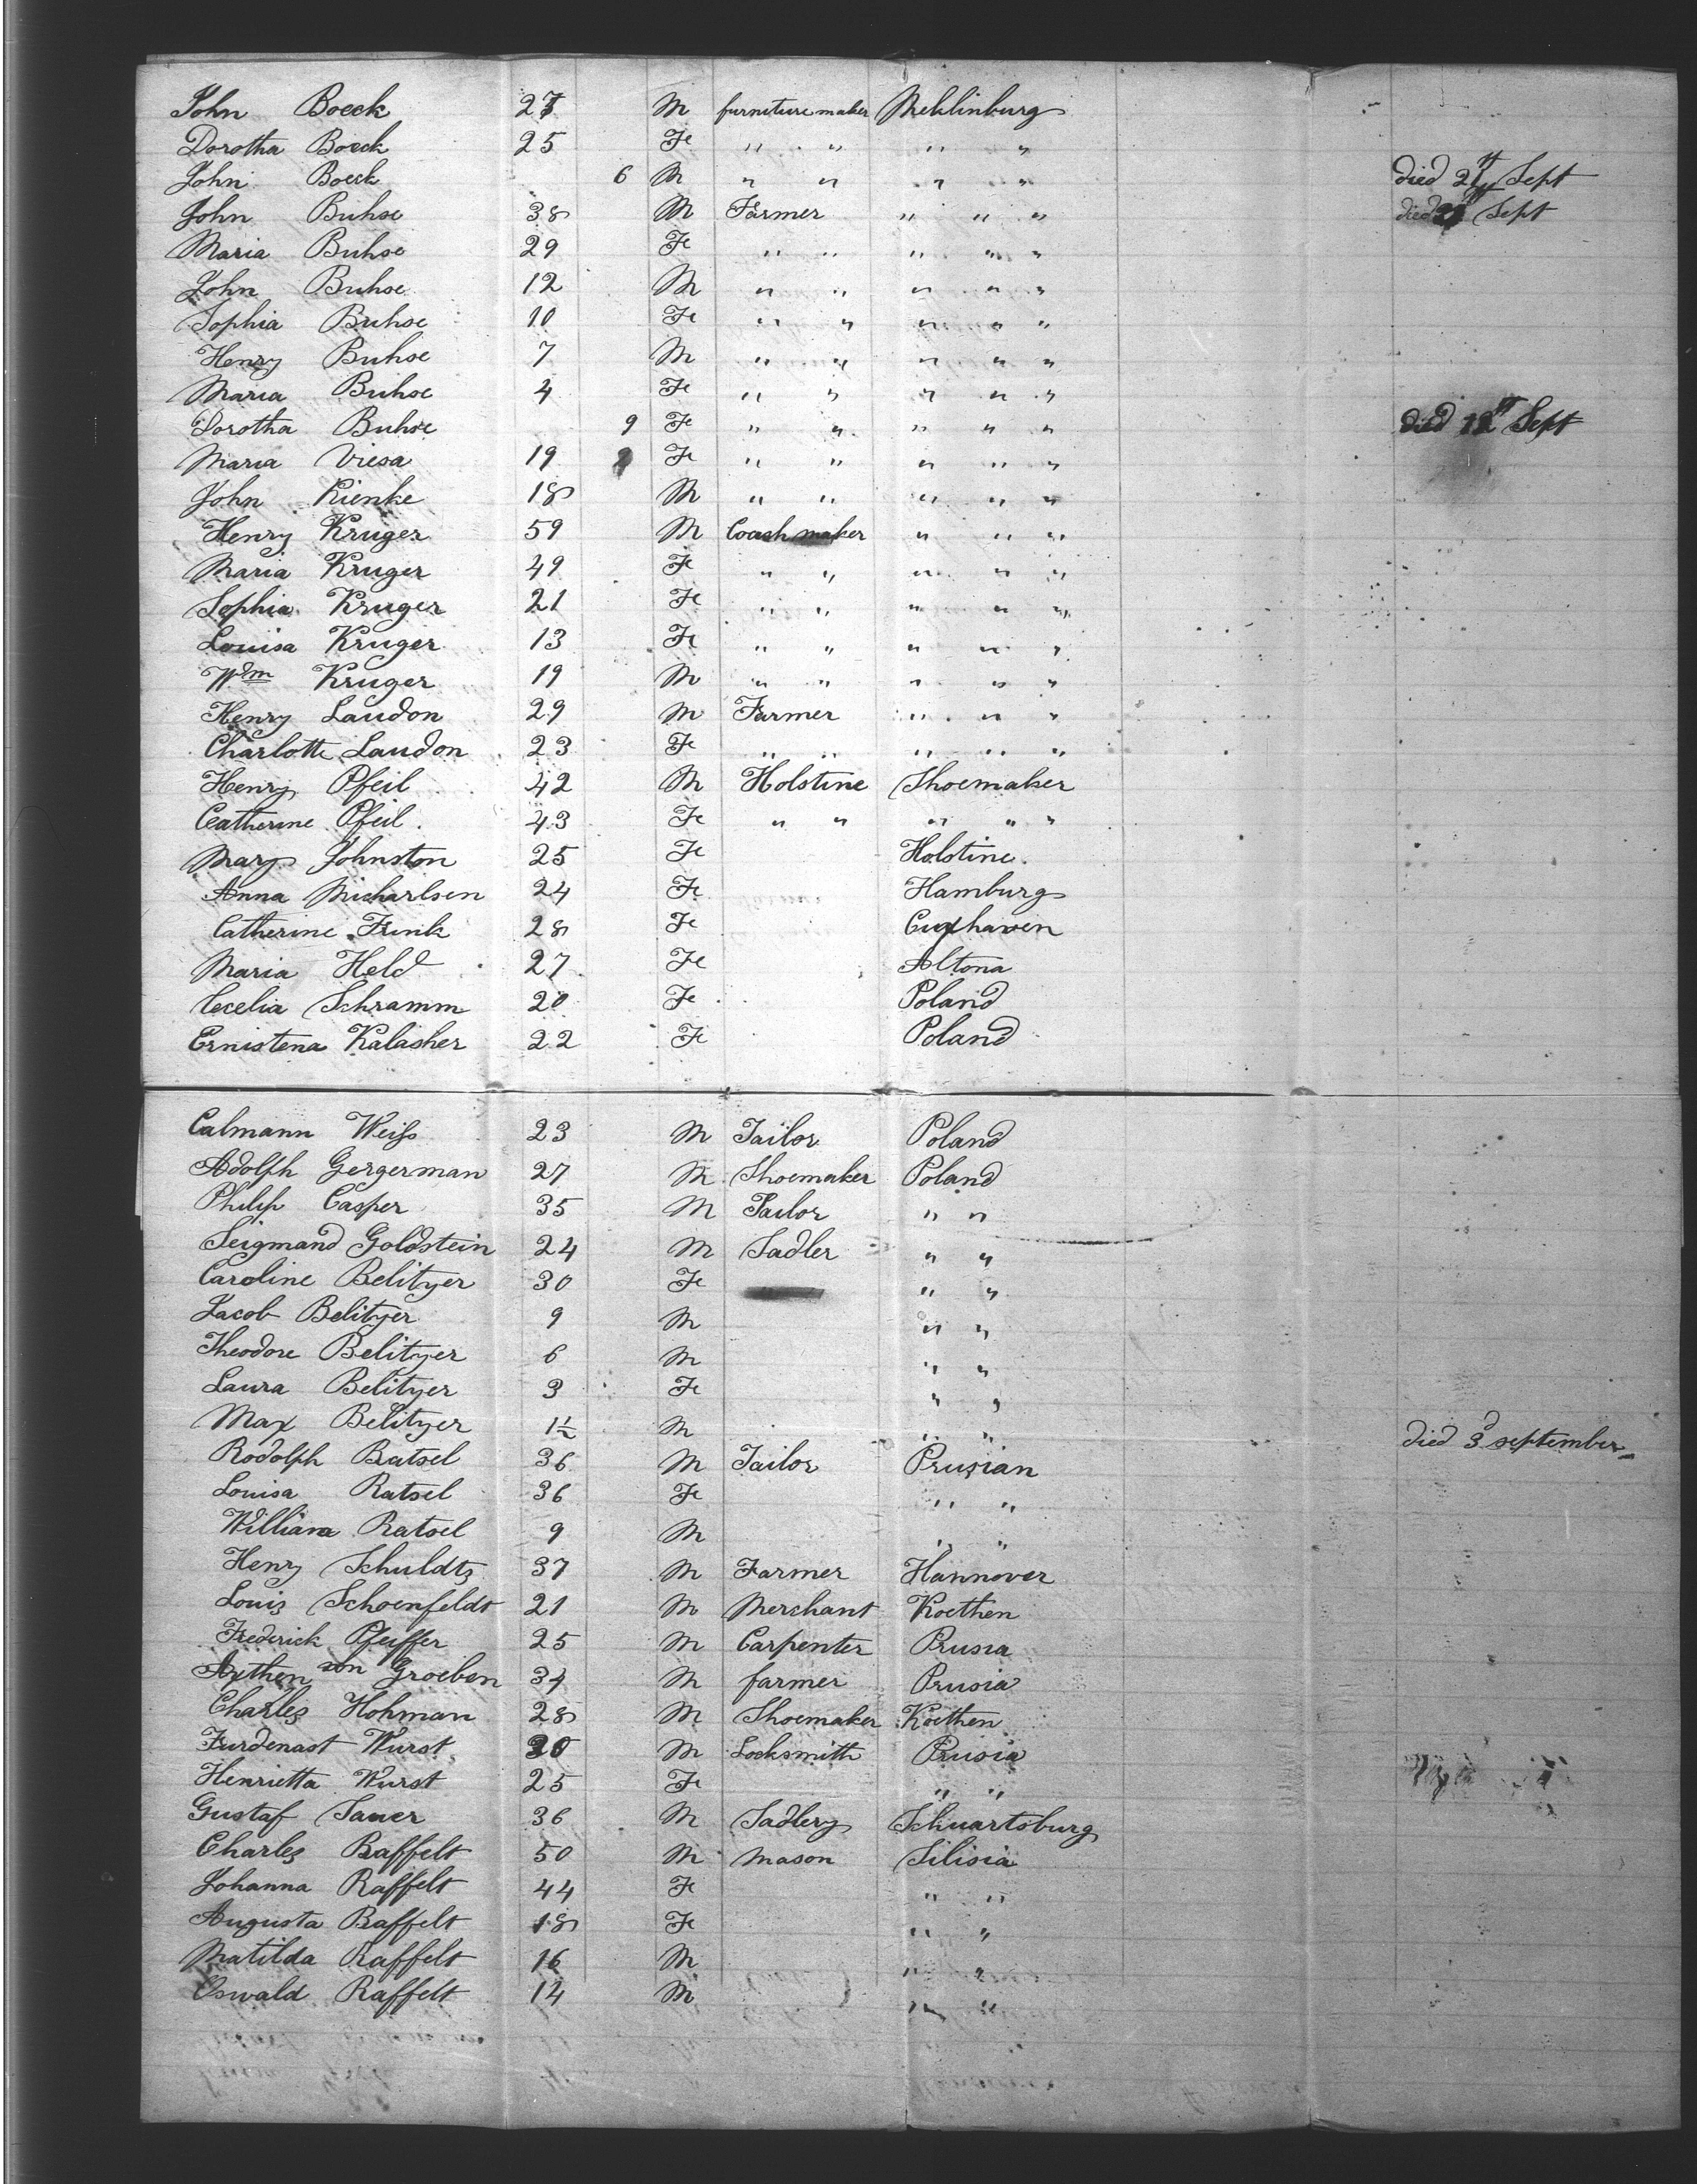 John Boeck 27 M furniture maker Meklinburg
Dorotha Boeck 25 Fe " " " "
John Boeck 6 M " " " " died Sept
John Buhse 38 M Farmer " " " died Sept
Maria Buhse 29 Fe " " " " "
John Buhse 12 M " " " " "
Sophia Buhse 10 Fe " " " " "
Henry Buhse 7 M " " " " "
Maria Buhse 4 Fe " " " " "
Dorotha Buhse 9 Fe " " " " " died Sept
Maria Viesa 19 Fe " " " " "
John Rienke 18 M " " " " "
Henry Kruger 59 M Coach maker " " "
Maria Kruger 49 Fe " " " " "
Sophia Kruger 21 Fe " " " " "
Louisa Kruger 13 Fe " " " " "
Wm Kruger 19 M " " " " "
Henry Laudon 29 M Farmer " " "
Charlotte Laudon 23 Fe " " " " "
Henry Pfeil 42 M Holstine Shoemaker
Catherine Pfeil 43 Fe " " " " "
Mary Johnston 25 Fe Holstine
Anna Micharlsen 24 Fe Hamburg
Catherine Frink 28 Fe Cuxhaven
Maria Held 27 Fe Altona
Cecelia Schramm 20 Fe Poland
Ernistena Kalasher 22 Fe Poland
Calmann Weiss 23 M Tailor Poland
Adolph Gergerman 27 M Shoemaker Poland
Philip Casper 35 M Tailor " "
Seigmand Goldstein 24 M Sadler " "
Caroline Belityer 30 Fe " "
Jacob Belityer 9 M " "
Theodore Belityer 6 M " "
Laura Belityer 3 Fe " "
Max Belityer 1½ M " " died 3d september
Rodolph Ratsel 36 M Tailor Prusian
Louisa Ratsel 36 Fe " "
William Ratsel 9 M " "
Henry Schuldtz 37 M Farmer Hannover
Louis Schoenfeldt 21 M Merchant Koethen
Frederick Pfeiffer 25 M Carpenter Prusia
von Groeben 34 M farmer Prusia
Charles Hohman 28 M Shoemaker Koethen
Furdenast Wurst M Locksmith Prusia
Henrietta Wurst 25 Fe " "
Gustaf Sauer 36 M Sadlery Schuartsburg
Charles Raffelt 50 M mason Silisia
Johanna Raffelt 44 Fe " "
Augusta Raffelt 18 Fe " "
Matilda Raffelt 16 M " "
Oswald Raffelt 14 M " "